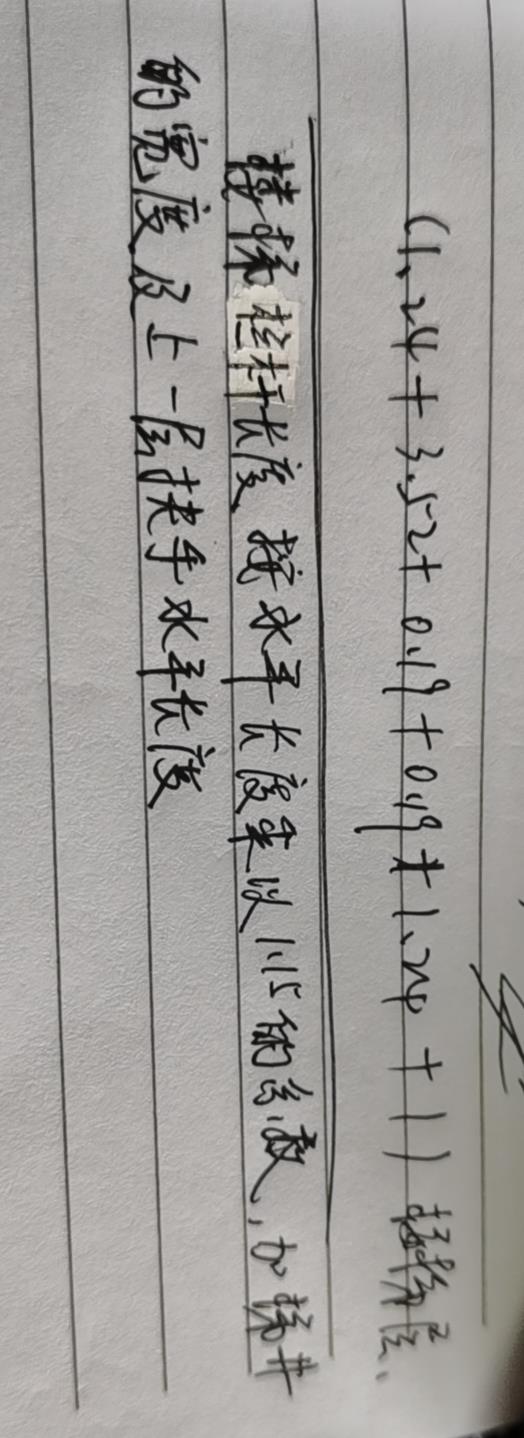 (1.24+3.52+0.19+0.19+1.24+1)
楼梯栏杆长度 按水平长度乘以1.15的系数,加梯井
的宽度及上一层扶手水平长度